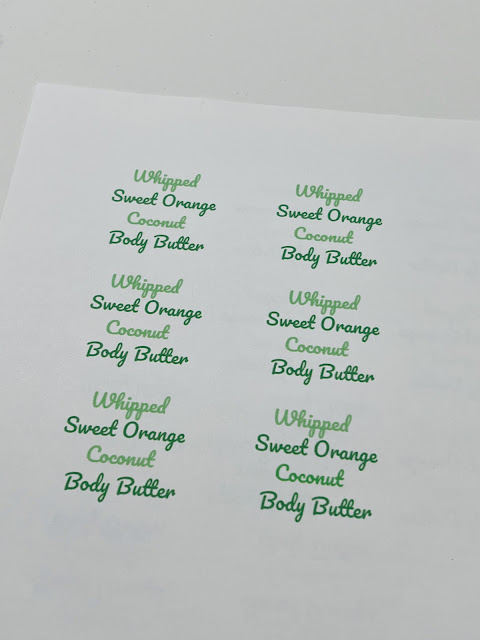 Whipped
Sweet Orange
Coconut
Body Butter
Whipped
Sweet Orange
Coconut
Body Butter
Whipped
Sweet Orange
Coconut
Body Butter
Whipped
Sweet Orange
Coconut
Body Butter
Whipped
Sweet Orange
Coconut
Body Butter
Whipped
Sweet Orange
Coconut
Body Butter